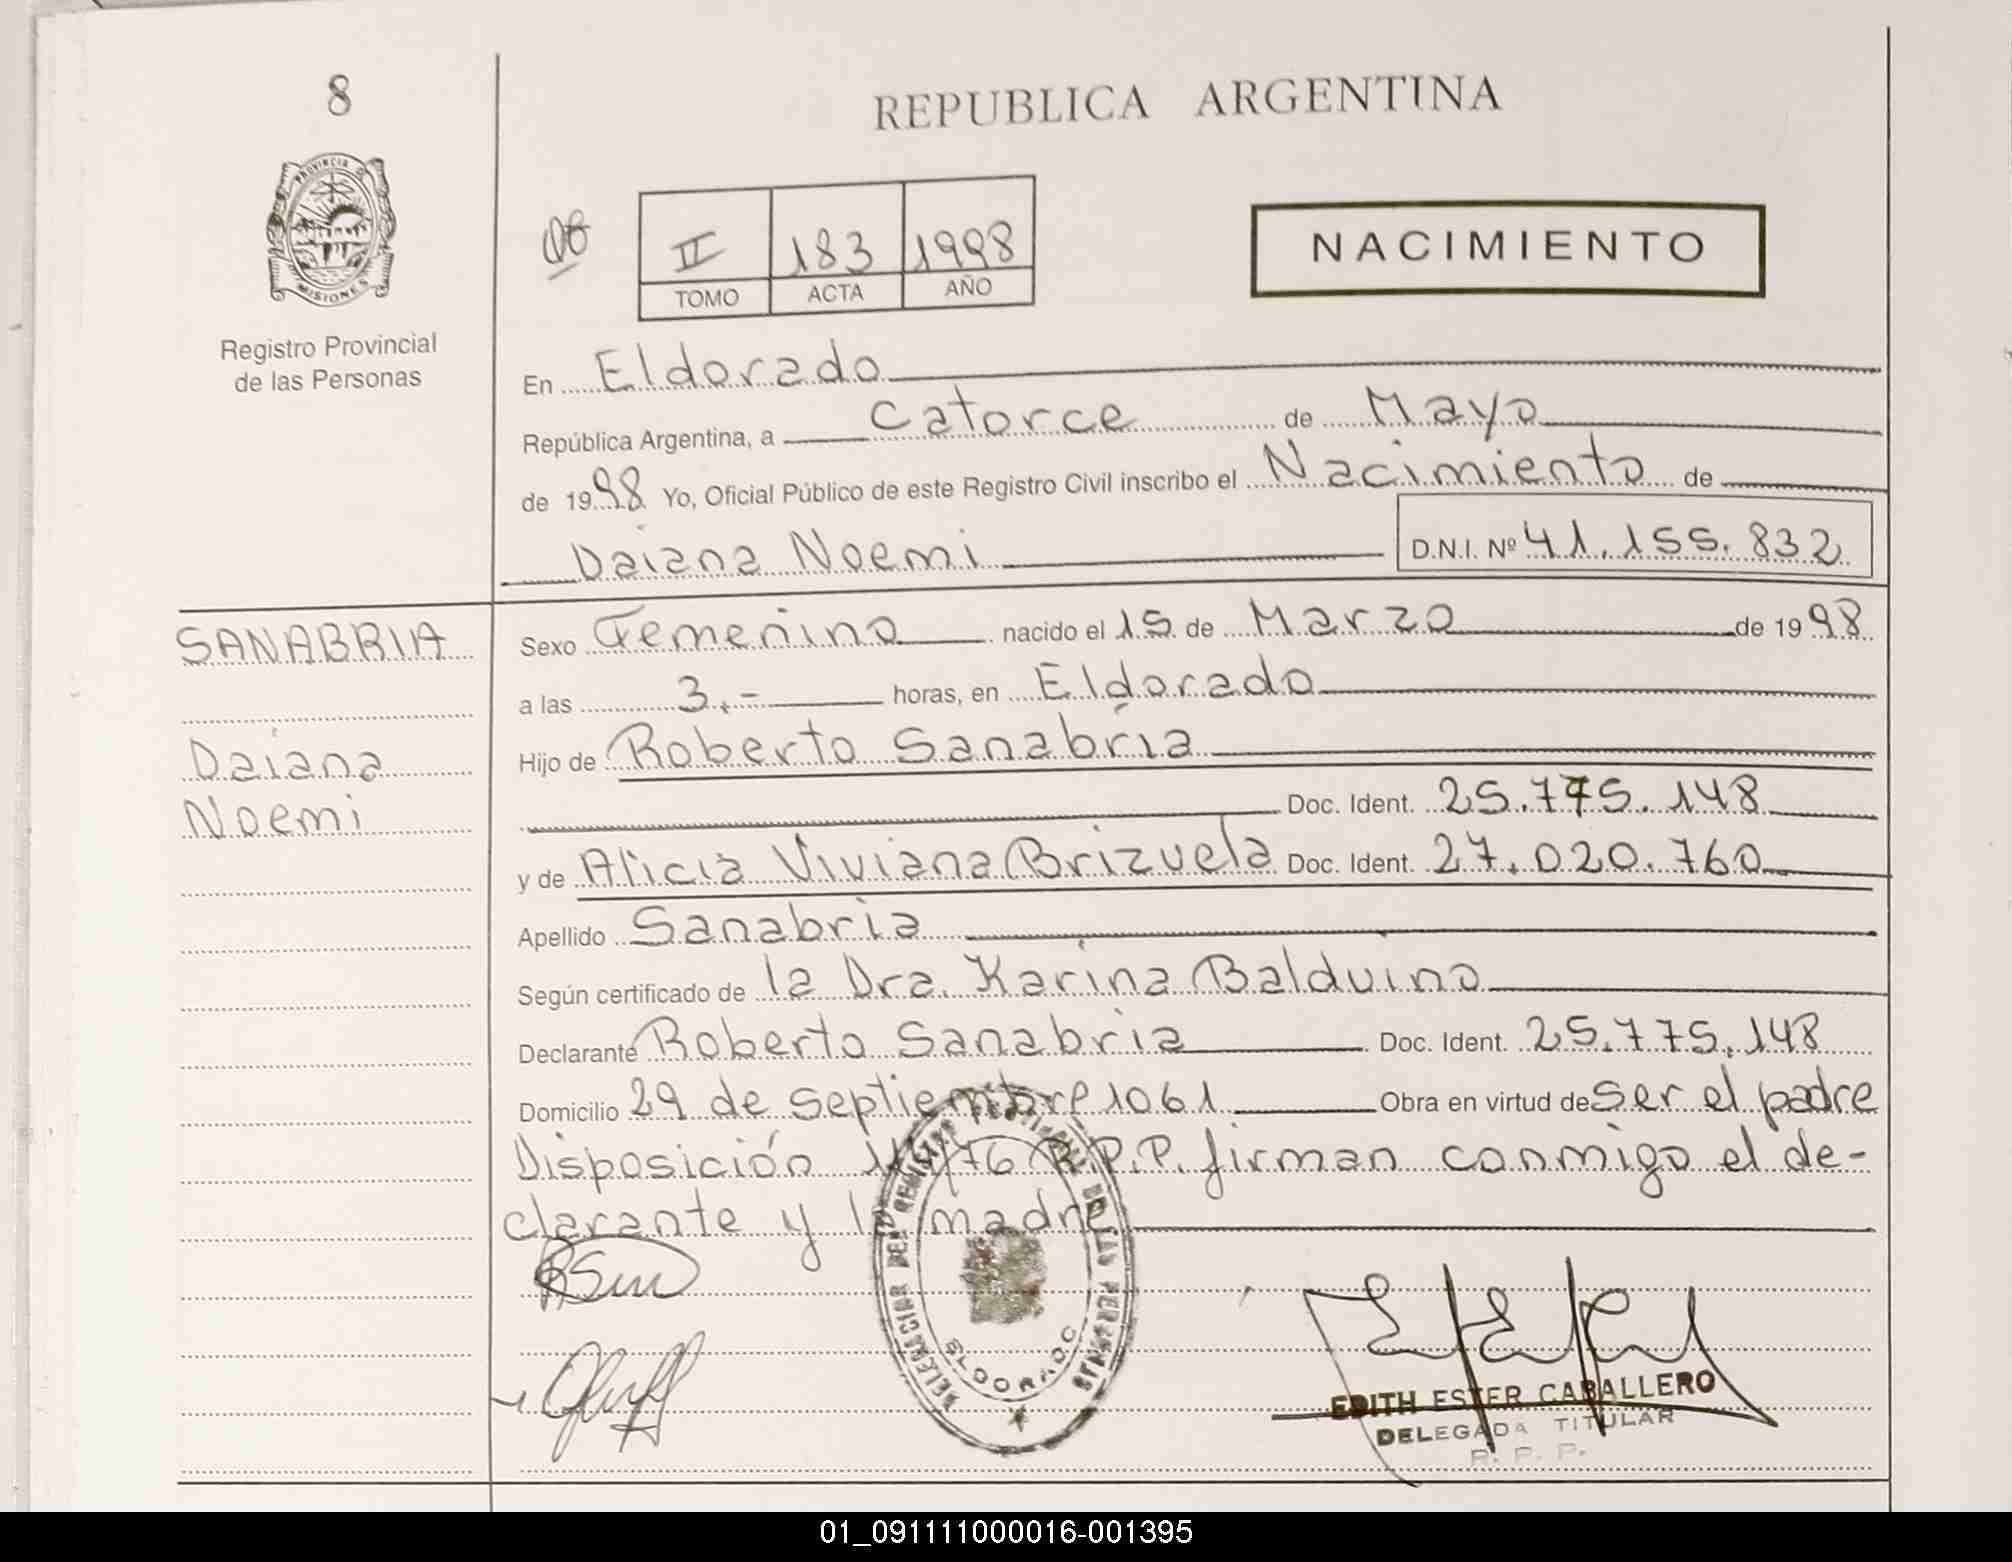 8
REPUBLICA ARGENTINA
PROVINCIA DE
MISIONES
Registro Provincial
de las Personas
II 183 1998
TOMO ACTA AÑO
NACIMIENTO
En Eldorado
República Argentina, a Catorce de Mayo
de 1998 Yo, Oficial Público de este Registro Civil inscribo el Nacimiento de
Daiana Noemi D.N.I. Nº 41.155.832
SANABRIA
Daiana
Noemi
Sexo Femenino nacido el 15 de Marzo de 1998
a las 3.- horas, en Eldorado
Hijo de Roberto Sanabria
Doc. Ident. 25.775.148
y de Alicia Viviana Brizuela Doc. Ident. 27.020.760
Apellido Sanabria
Según certificado de la Dra. Karina Balduino
Declarante Roberto Sanabria Doc. Ident. 25.775.148
Domicilio 29 de septiembre 1061 Obra en virtud de ser el padre
Disposición /76 R.P.P. firman conmigo el de-
clarante y la madre
DELEGACION DEL REGISTRO PROVINCIAL DE LAS PERSONAS
ELDORADO
EDITH ESTER CABALLERO
DELEGADA TITULAR
R. P. P.
01_091111000016-001395